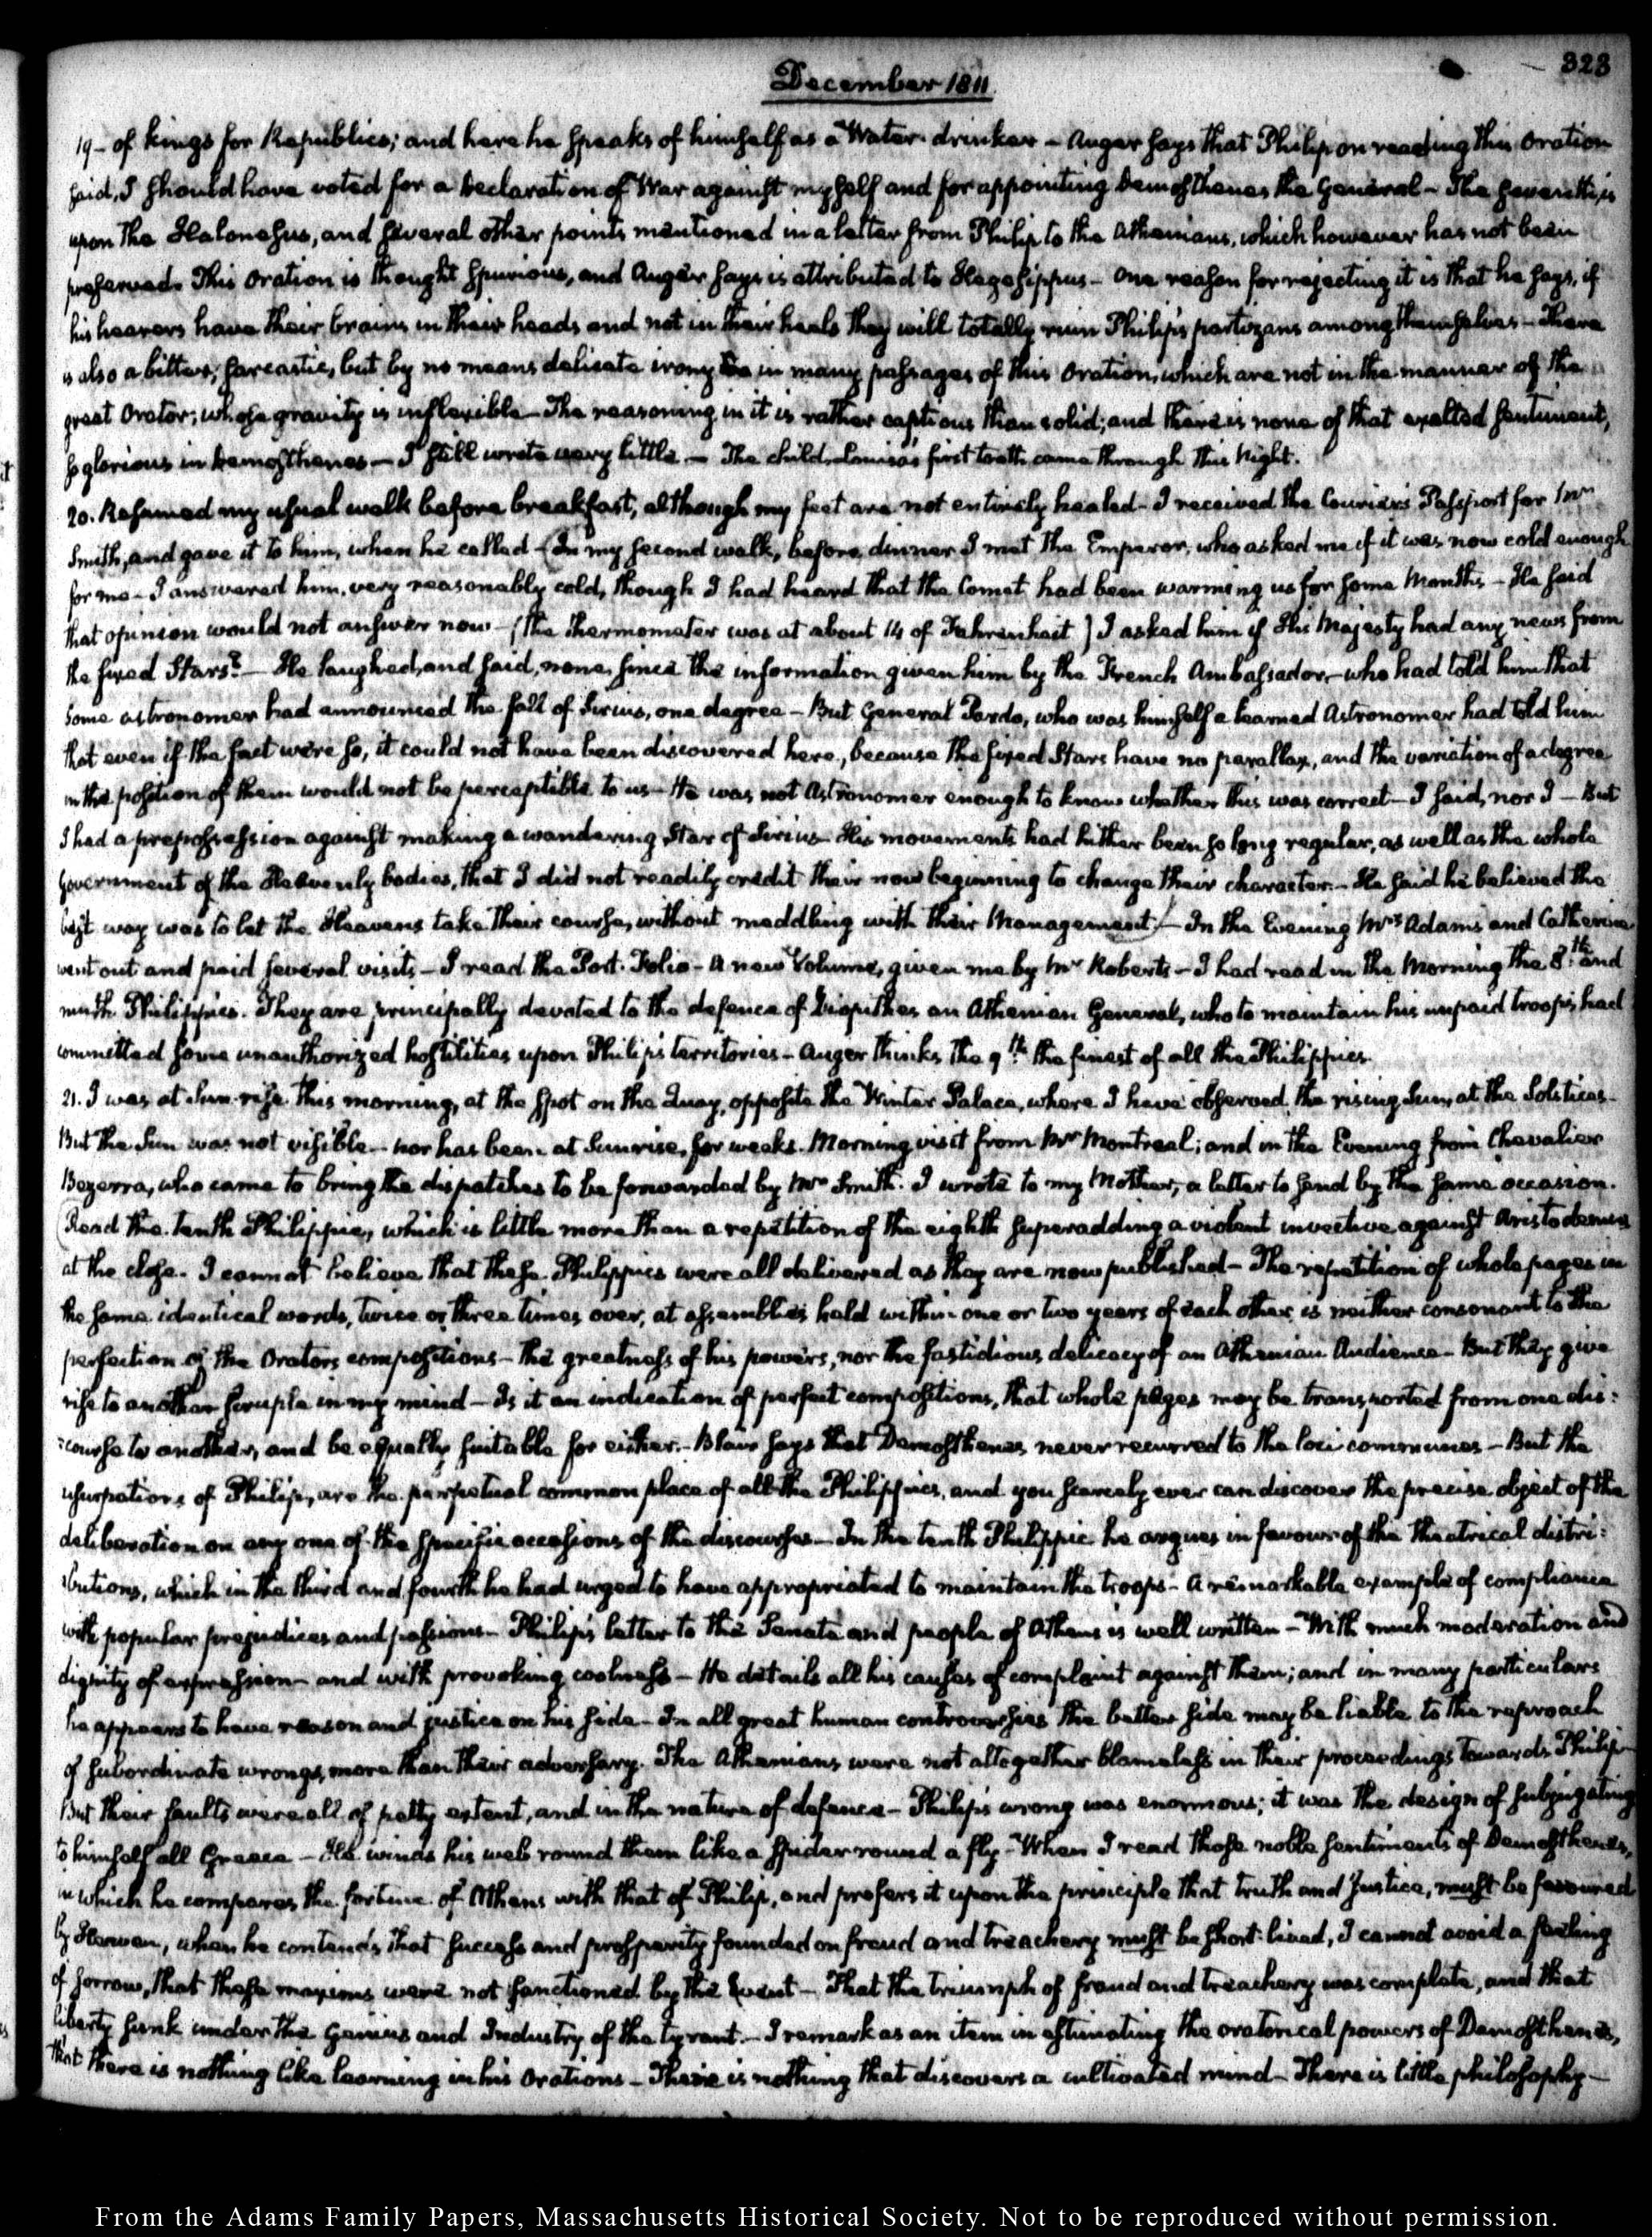 323
December 1811
19 – of kings for Republics; and here he speaks of himself as a Water-drinker – Auger says that Philip on reading this Oration
said, I should have voted for a Declaration of War against myself and for appointing Demosthenes the General – The seventh, is
upon the Halonesus, and several other points mentioned in a letter from Philip to the Athenians, which however has not been
preserved. This Oration is thought spurious, and Auger says is attributed to Hegesippus – One reason for rejecting it is that he says, if
his hearers have their brains in their heads and not in their heels they will totally ruin Philip's partizans among themselves – There
is also a bitter, sarcastic, but by no means delicate irony in many passages of this Oration, which are not in the manner of the
great Orator; whose gravity is inflexible – The reasoning in it is rather captious than solid; and there is none of that exalted sentiment,
so glorious in Demosthenes – I still wrote very little – The child, Louisa's first tooth came through this Night.
20. Resumed my usual walk before breakfast, although my feet are not entirely healed – I received the Courier's Passport for Mr
Smith, and gave it to him, when he called – (In my second walk, before dinner I met the Emperor, who asked me if it was now cold enough
for me – I answered him, very reasonably cold, though I had heard that the Comet had been warming us for some Months – He said
that opinion would not answer now – (The thermometer was at about 14 of Fahrenheit) I asked him if His Majesty had any news from
the fixed Stars? – He laughed, and said, none, since the information given him by the French Ambassador, – who had told him that
some astronomer had announced the fall of Sirius, one degree – But General Pardo, who was himself a learned Astronomer had told him
that even if the fact were so, it could not have been discovered here, because the fixed Stars have no parallax, and the variation of a degree
in the position of them would not be perceptible to us – He was not Astronomer enough to know whether this was correct – I said, nor I – But
I had a prepossession against making a wandering Star of Sirius – His movements had hither been so long regular, as well as the whole
Government of the Heavenly bodies, that I did not readily credit their now beginning to change their character. – He said he believed the
best way was to let the Heavens take their course, without meddling with their Management.) – In the Evening Mrs Adams and Catherine
went out and paid several visits – I read the Port-Folio – A new Volume, given me by Mr Roberts – I had read in the Morning the 8th and
ninth Philippics. They are principally devoted to the defence of Diopithes an Athenian General, who to maintain his unpaid troops, had
committed some unauthorized hostilities upon Philip's territories – Auger thinks the 9th the finest of all the Philippics.
21. I was at Sun-rise this morning, at the spot on the Quay, opposite the Winter Palace, where I have observed the rising Sun, at the Solstices –
But the Sun was not visible – nor has been at Sunrise, for weeks. Morning visit from Mr Montreal; and in the Evening from Chevalier
Bezerra, who came to bring the dispatches to be forwarded by Mr Smith. I wrote to my Mother, a letter to send by the same occasion.
(Read the tenth Philippic, which is little more than a repetition of the eighth superadding a violent invective against Aristodemus
at the close. I cannot believe that these Philippics were all delivered as they are now published – The repetition of whole pages in
the same identical words, twice or three times over, at assemblies held within one or two years of each other, is neither consonant to the
perfection of the Orators compositions – the greatness of his powers, nor the fastidious delicacy of an Athenian Audience – But they give
rise to another scruple in my mind – Is it an indication of perfect compositions, that whole pages may be transported from one dis:
:course to another, and be equally suitable for either. – Blair says that Demosthenes never recurred to the loci communes – But the
usurpations of Philip, are the perpetual common place of all the Philippics, and you scarcely ever can discover the precise object of the
deliberation on any one of the specific occasions of the discourses – In the tenth Philippic he argues in favour of the theatrical distri:
:butions, which in the third and fourth he had urged to have appropriated to maintain the troops – A remarkable example of compliance
with popular prejudices and passions – Philip's letter to the Senate and people of Athens is well written – With much moderation and
dignity of expression – and with provoking coolness – He details all his causes of complaint against them; and in many particulars
he appears to have reason and justice on his side – In all great human controversies the better side may be liable to the reproach
of subordinate wrongs, more than their adversary. The Athenians were not altogether blameless in their proceedings towards Philip
But their faults were all of petty extent, and in the nature of defence – Philip's wrong was enormous; it was the design of subjugating
to himself all Greece – He winds his web round them like a spider round a fly – When I read those noble sentiments of Demosthenes,
in which he compares the fortune of Athens with that of Philip, and prefers it upon the principle that truth and Justice, must be favoured
by Heaven, when he contends that success and prosperity founded on fraud and treachery must be short-lived, I cannot avoid a feeling
of sorrow, that these maxims were not sanctioned by the Event – That the triumph of fraud and treachery was complete, and that
liberty sunk under the Genius and Industry of the tyrant. – I remark as an item in estimating the oratorical powers of Demosthenes,
that there is nothing like learning in his Orations – There is nothing that discovers a cultivated mind – There is little philosophy –
From the Adams Family Papers, Massachusetts Historical Society. Not to be reproduced without permission.